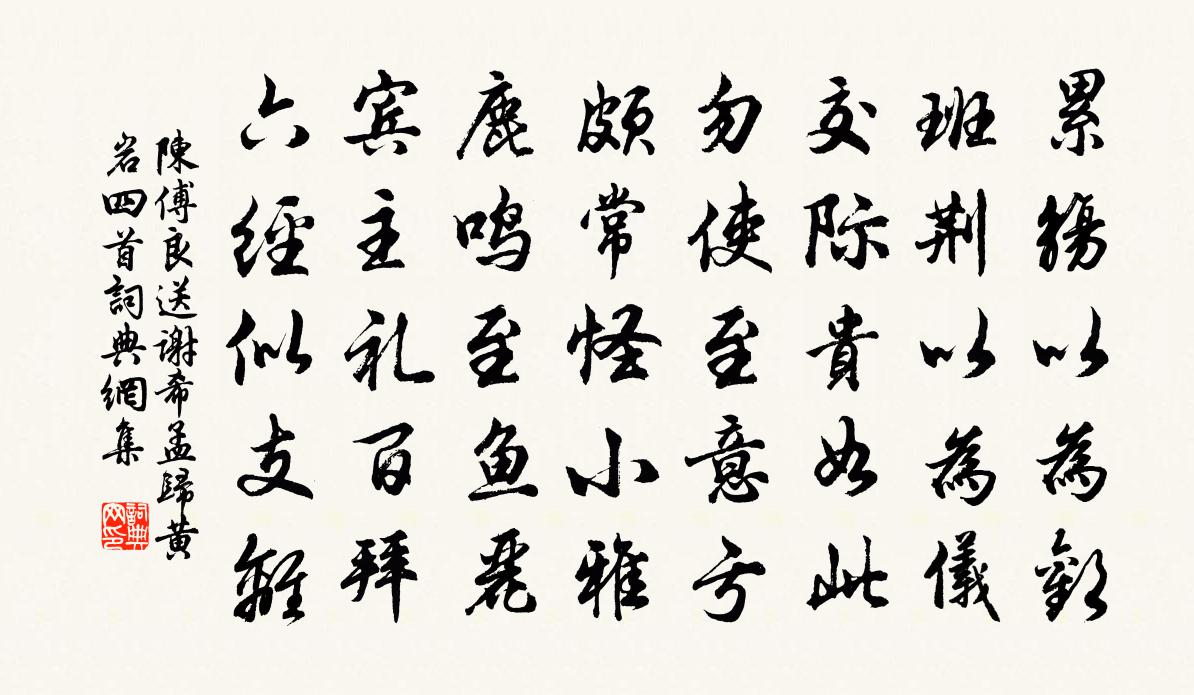 累觴以為歡
班荆以為儀
交际貴如此
勿使至意亏
頗常怪小雅
鹿鸣至鱼麗
宾主礼百拜
六經似支離
陳傅良送謝希孟歸黄
岩四首詞典網集
詞典网印